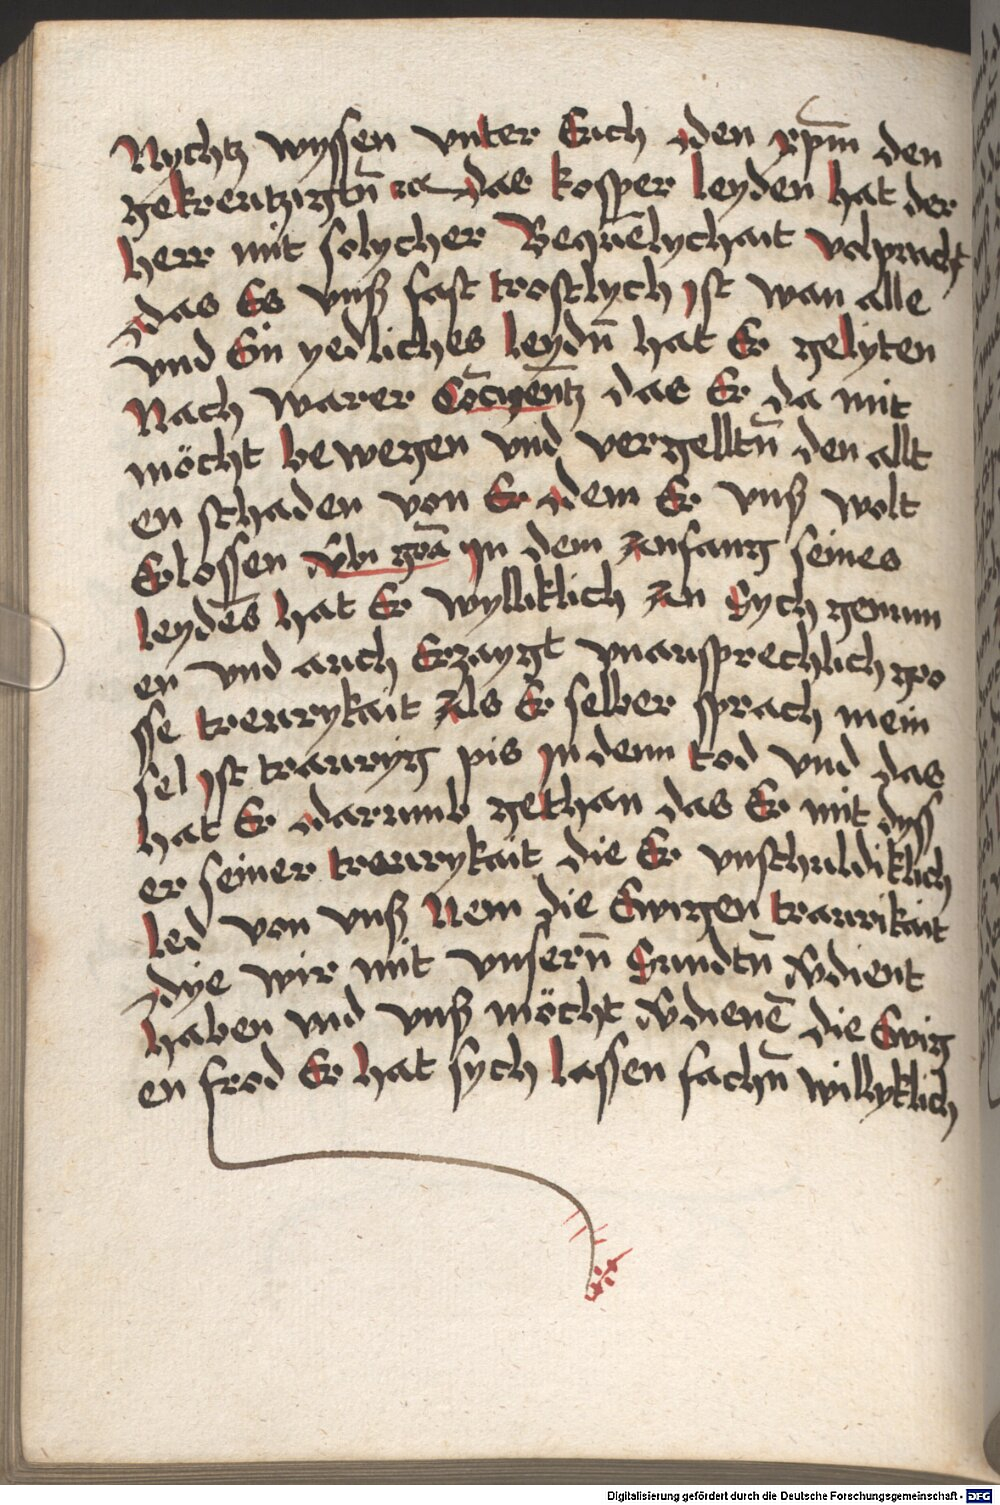 Nychtz wyssen vnter Euch den xp̄m den
gekreutzigtn̄ ꝛc das kosper leyden hat der
herr mit solycher Bequēlychait volpracht
das Es vnß fast trostlych ist wan alle
vnd Ein yedliches leydn̄ hat Er gelyten
Nach warer Cōcyen̄tz das Er da mit
möcht bewegen vnd vergelltn̄ den allt
en schaden von Er dem Er vnß wolt
Erlossen v̄bi grā Jn dem Anfang seines
leydēs hat Er wylliklich An Sych genum
en vnd auch Erzaygt vnausprechlich gro
sse traurykait Als Er selber sprach mein
sel ist traurig pis in denn tod vnd das
hat Er darumb gethan das Er mit dyss
er seiner traurykait die Er vnschuldiklich
led von vnß Nem die Ewigen traurikait
dye wir mit vnsern̄ Sundtn̄ v̄dient
haben vnd vnß möcht v̄dienē die Ewig
en frod Er hat sych lassen fachn̄ willyklich
Digitalisierung gefördert durch die Deutsche Forschungsgemeinschaft - DFG